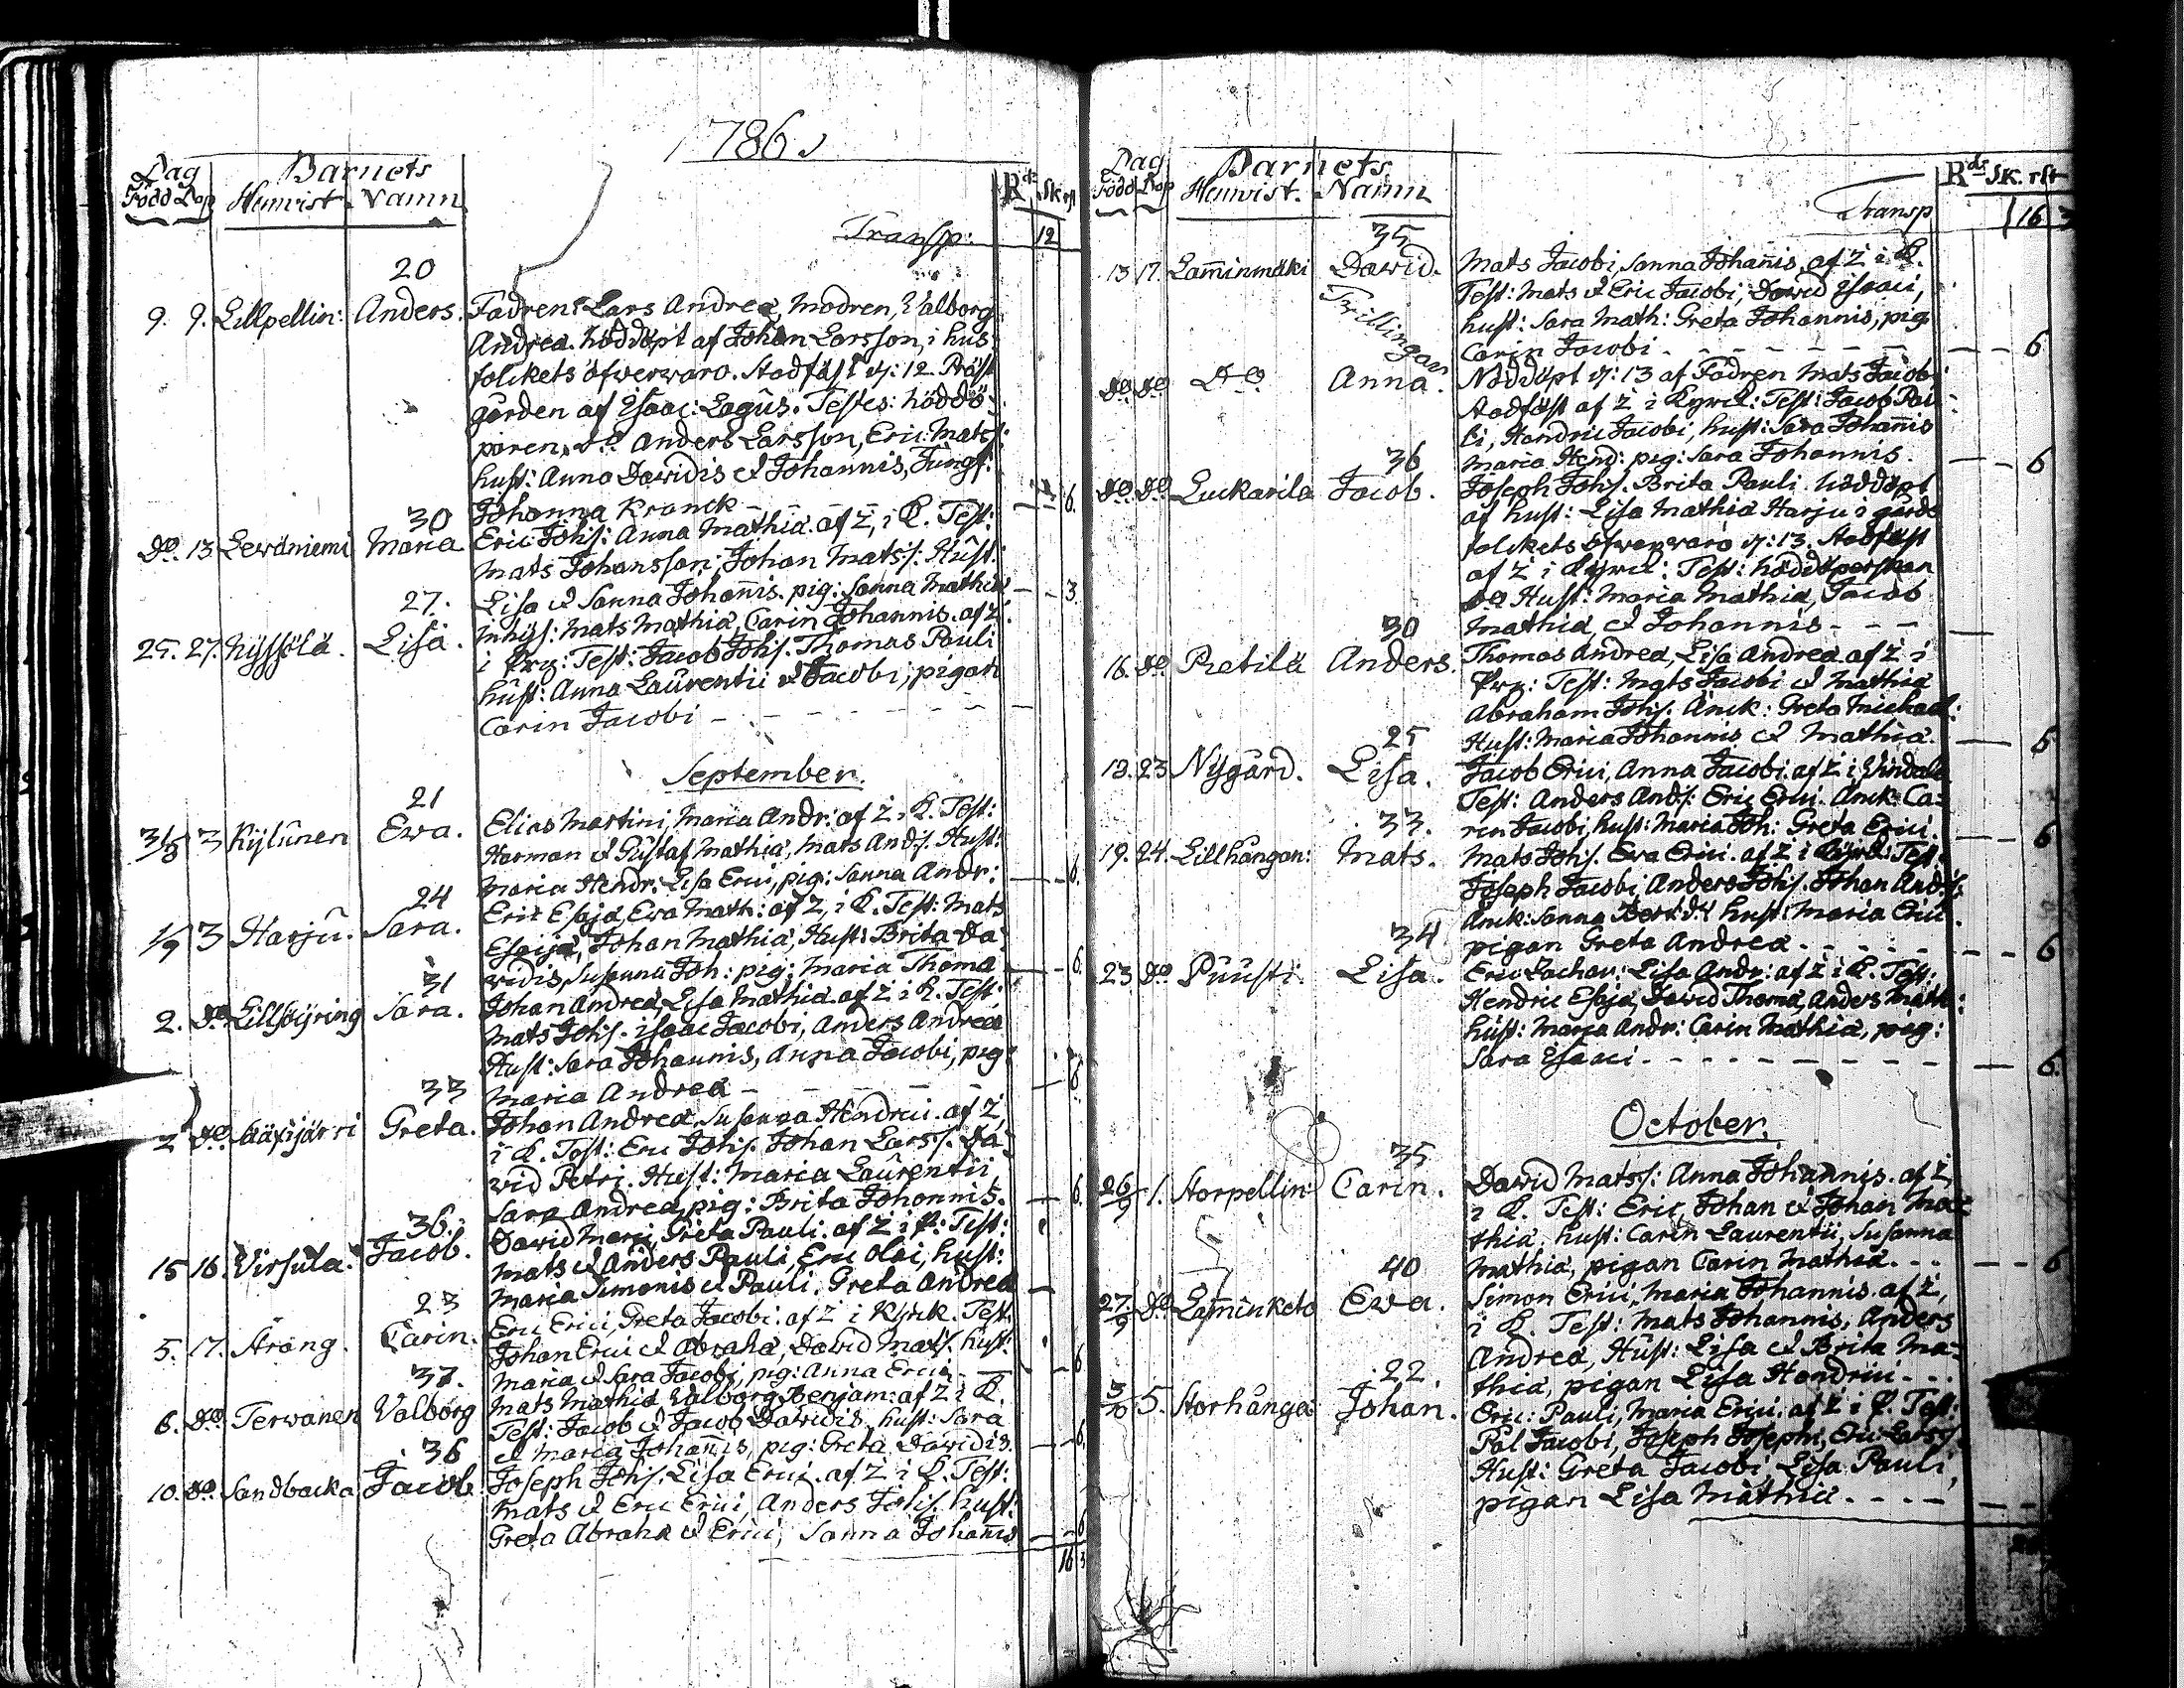 1786
Dag Barnets
Född Döp Hemvist. Namn Rd Sk. rst
Transp: 12
20
9. 9. Lillpellin: Anders. Fadren: Lars Andreæ, Modren, Valborg
Andreæ. Nöddöpt af Johan Larsson, i hus
folckets öfwerwaro. Stadfäst d: 12. Präst
gården af Esaac: Lagus. Testes: Nöddö-
paren, Do Anders Larsson, Eric: Mats:
hust: Anna Dawidis & Johannis, Jungf:
Johanna Kranck - - - 6.
30
Do. 13 Lewäniemi Maria Eric Johs: Anna Mathiæ af Z, i K. Test:
Mats Johansson, Johan Matss. Hust:
Lisa & Sanna Johannis. pig: Sanna Mathiæ - - 3.
27.
25. 27. Nyssölä. Lisa. Inhys: Mats Mathiæ, Carin Johannis. af Z.
i Prg: Test: Jacob Johs. Thomas Pauli
hust: Anna Laurentii & Jacobi, pigan
Carin Jacobi - - - - -
September.
21
31/8 3 Kylänen Ewa. Elias Martini, Maria Andr: af Z, K. Test:
Harman & Gustaf Mathiæ, Mats Ands. Hust:
Maria Hendr: Lisa Erici, pig: Sanna Andr: - - 6.
24
1/9 3 Harju. Sara. Eric Esajæ, Ewa Math: af Z, i K. Test: Mats
Esaijæ, Johan Mathiæ, Hust: Brita Da
widis, Susanna Joh: pig: Maria Thomæ - - 6.
31
2. Do Lillsöyring Sara. Johan Andreæ, Lisa Mathiæ. af Z i K. Test:
Mats Johs. Isaac Jacobi, Anders Andreæ
Hust: Sara Johannis, Anna Jacobi, pig:
Maria Andreæ - - - - - 6
33
2 Do. Greta. Johan Andreæ, Susanna Hendrici. af Z,
i K. Test: Eric Johs. Johan Larss. Da-
wid Petri. Hust: Maria Laurentii
Sara Andreæ, pig: Brita Johannis. - 6.
36.
15 16. Virsula. Jacob. Dawid Marci, Greta Pauli. af Z i P: Test:
Mats & Anders Pauli, Eric Olai, hust:
Maria Simonis & Pauli. Greta Andreæ -
23
5. 17. Strång. Carin. Eric Erici, Greta Jacobi. af Z i Kyrck. Test:
Johan Erici & Abrahæ, Dawid Mats. hust:
Maria & Sara Jacobi, pig: Anna Erici - - 6
37.
6. Do. Terwanen Valborg Mats Mathiæ Valborg Benjam: af Z i K.
Test: Jacob & Jacob Dawidis. hust: Sara
& Maria Johannis, pig: Greta Dawidis. - - 6
36
10. Do. Sandbacka Jacob. Joseph Johs. Lisa Erici. af Z i K. Test:
Mats & Eric Erici, Anders Johs. hust:
Greta Abrahæ & Erici, Sanna Johannis - - 6
16 3
Dag Barnets
Född Döp Hemvist. Namn Rds Sk. rst
Transp 16 3
35
13 17. Lamminmäki Dawid. Mats Jacobi, Sanna Johannis, af Z i K.
Trillingar
Test: Mats & Eric Jacobi, Dawid Esaaci,
hust: Sara Math: Greta Johannis, pig.
Carin Jacobi - - - - - 6
Do. Do Do Anna. Nöddöpt d: 13 af Fadren Mats Jacobi,
stadfäst af Z i Kyrck: Test: Jacob Pau-
li, Hendric Jacobi, hust: Sara Johannis
Maria Hend: pig: Sara Johannis. - - 6
36
Do Do Luckarila Jacob. Joseph Johs. Brita Pauli. Nöddöpt
af hust: Lisa Mathiæ Harju o gårds
folckets öfwerwaro d: 13. Stadfäst
af Z i Kyrck: Test: Nöddöperskan
Do Hust: Maria Mathiæ, Jacob
Mathiæ, & Johannis - - - -
30
16. Do. Pretilä Anders. Thomas Andreæ, Lisa Andreæ af Z i
Prg: Test: Mats Jacobi & Mathiæ
Abraham Johs. Änck: Greta Michael:
Hust: Maria Johannis & Mathiæ. - 6
25
18. 23 Nygård. Lisa. Jacob Erici, Anna Jacobi. af Z i Vindala
Test: Anders Ands. Eric Erici. Änck: Ca-
rin Jacobi, hust: Maria Joh: Greta Erici. - 6
33.
19. 24. Lillhångan: Mats. Mats Johs. Ewa Erici. af Z i Kyrck: Test:
Joseph Jacobi, Anders Johs. Johan Ands.
Änck: Sanna hust: Maria Erici
pigan Greta Andreæ. - - - - 6
34
23 Do Puusti. Lisa. Eric Zachar: Lisa Andr: af Z i K. Test:
Hendric Esajæ, Dawid Thomæ, Anders Math:
hust: Maria Andr: Carin Mathiæ, pig:
Sara Esaaci. - - - - - 6.
October.
35
26/9 1. Storpellin Carin. Dawid Matss: Anna Johannis. af Z,
i K. Test: Eric, Johan & Johan Ma-
thiæ. hust: Carin Laurentii, Susanna
Mathiæ, pigan Carin Mathiæ. - - - 6
40
27/9 Do Lamminketo Ewa. Simon Erici, Maria Johannis. af Z,
i K. Test: Mats Johannis, Anders
Andreæ, Hust: Lisa & Brita Ma-
thiæ, pigan Lisa Hendrici - - -
22.
3/10 5. Storhånga Johan. Eric: Pauli, Maria Erici. af Z i K. Test:
Pål Jacobi, Joseph Josephi, Eric Larss.
Hust: Greta Jacobi, Lisa Pauli,
pigan Lisa Mathiæ. - - - -